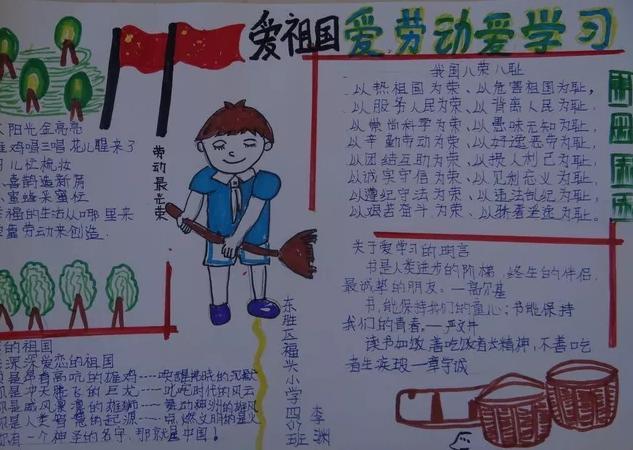 爱祖国爱劳动爱学习
太阳光金亮亮
雄鸡唱三唱 花儿醒来了
鸟儿忙梳妆
小喜鹊造新房
小蜜蜂采蜜忙
幸福的生活从哪里来
要靠劳动来创造.
劳动最光荣
我国八荣八耻
以热祖国为荣、以危害祖国为耻，
以服务人民为荣、以背离人民为耻，
以崇尚科学为荣、以愚昧无知为耻，
以辛勤劳动为荣、以好逸恶劳为耻，
以团结互助为荣、以损人利己为耻，
以诚实守信为荣、以见利忘义为耻，
以遵纪守法为荣、以违法乱纪为耻，
以艰苦奋斗为荣、以骄奢淫逸为耻。
关于爱学习的明言
书是人类进步的阶梯，终生的伴侣，
最诚挚的朋友。—高尔基
书，能保持我们的童心；书能保持
我们的青春。—严文井
读书如饭，善吃饭者长精神，不善吃
者生疾
东胜区福兴小学四
班
李渊
的祖国
深深爱恋的祖国
那就是中国！